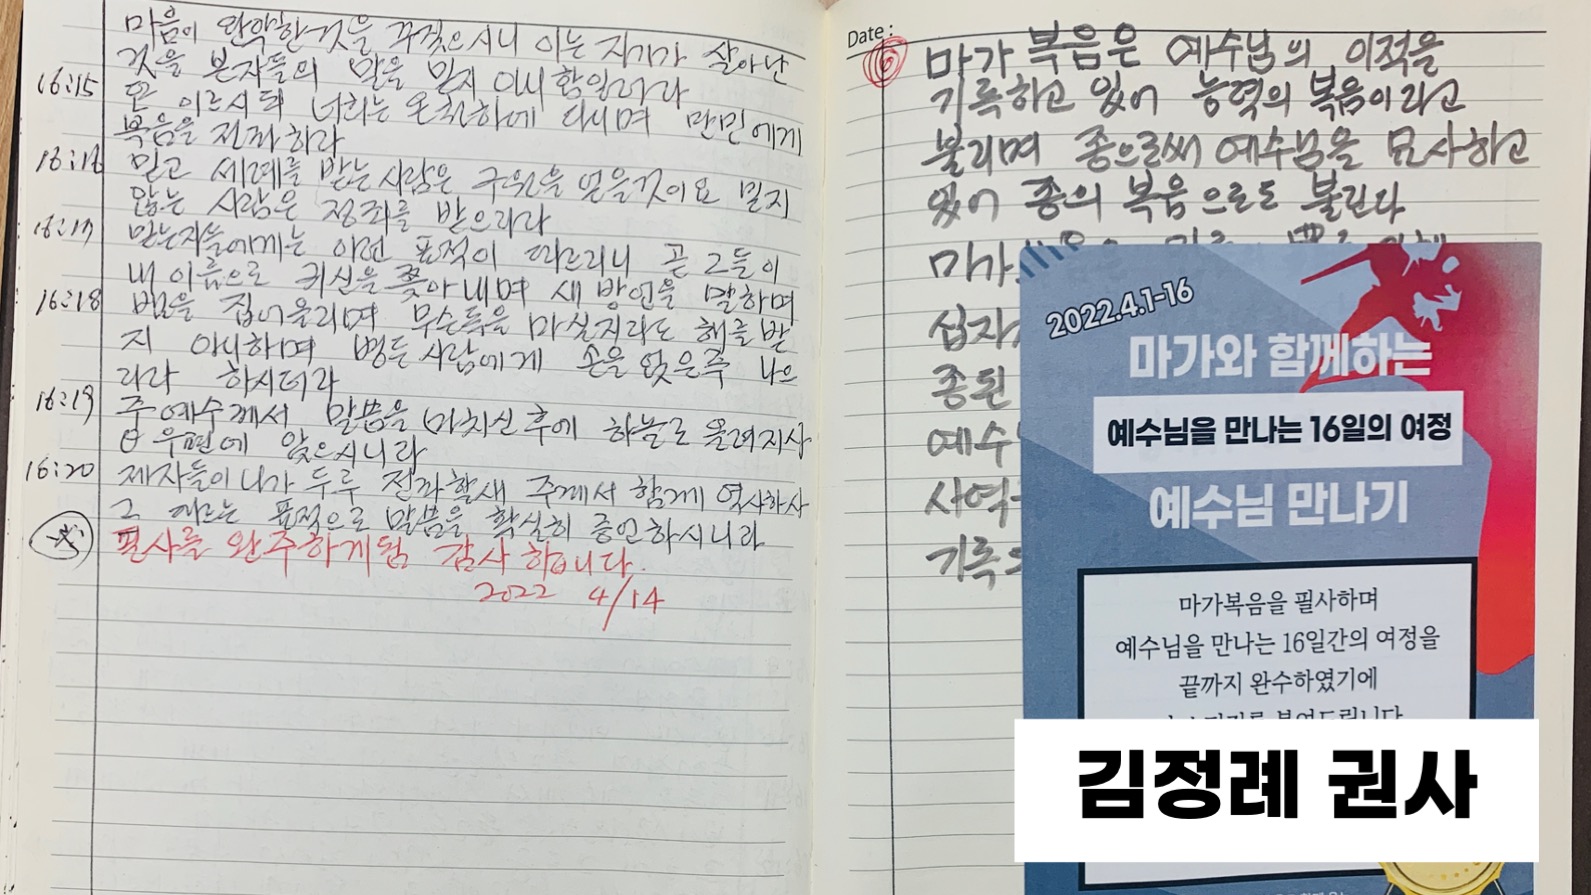 마음이 완악한것을 꾸짖으시니 이는 자기가 살아난
것을 본자들의 말을 믿지 아니함일러라
16:15 또 이르시되 너희는 온천하에 다니며 만민에게
복음을 전파하라
16:16 믿고 세례를 받는사람은 구원을 얻을것이요 믿지
않는 사람은 정죄를 받으리라
16:17 믿는자들에게는 이런 표적이 따르리니 곧 그들이
내 이름으로 귀신을 쫓아내며 새 방언을 말하며
16:18 뱀을 집어올리며 무슨독을 마실지라도 해를 받
지 아니하며 병든사람에게 손을 얹은즉 나으
리라 하시더라
16:19 주예수께서 말씀을 마치신 후에 하늘로 올려지사
우편에 앉으시니라
16:20 제자들이 나가 두루 전파할새 주께서 함께 역사하사
그 따르는 표적으로 말씀을 확실히 증언하시니라
필사를 완주하게됨 감사합니다.
2022 4/14
Date:
마가복음은 예수님의 이적을
기록하고 있어 능력의 복음이라고
불리며 종으로써 예수님을 묘사하고
있어 종의 복음으로도 불린다
마가
십자
종된
예수
사역
기록
2022.4.1-16
마가와 함께하는
예수님을 만나는 16일의 여정
예수님 만나기
마가복음을 필사하며
예수님을 만나는 16일간의 여정을
끝까지 완수하였기에
김정례 권사